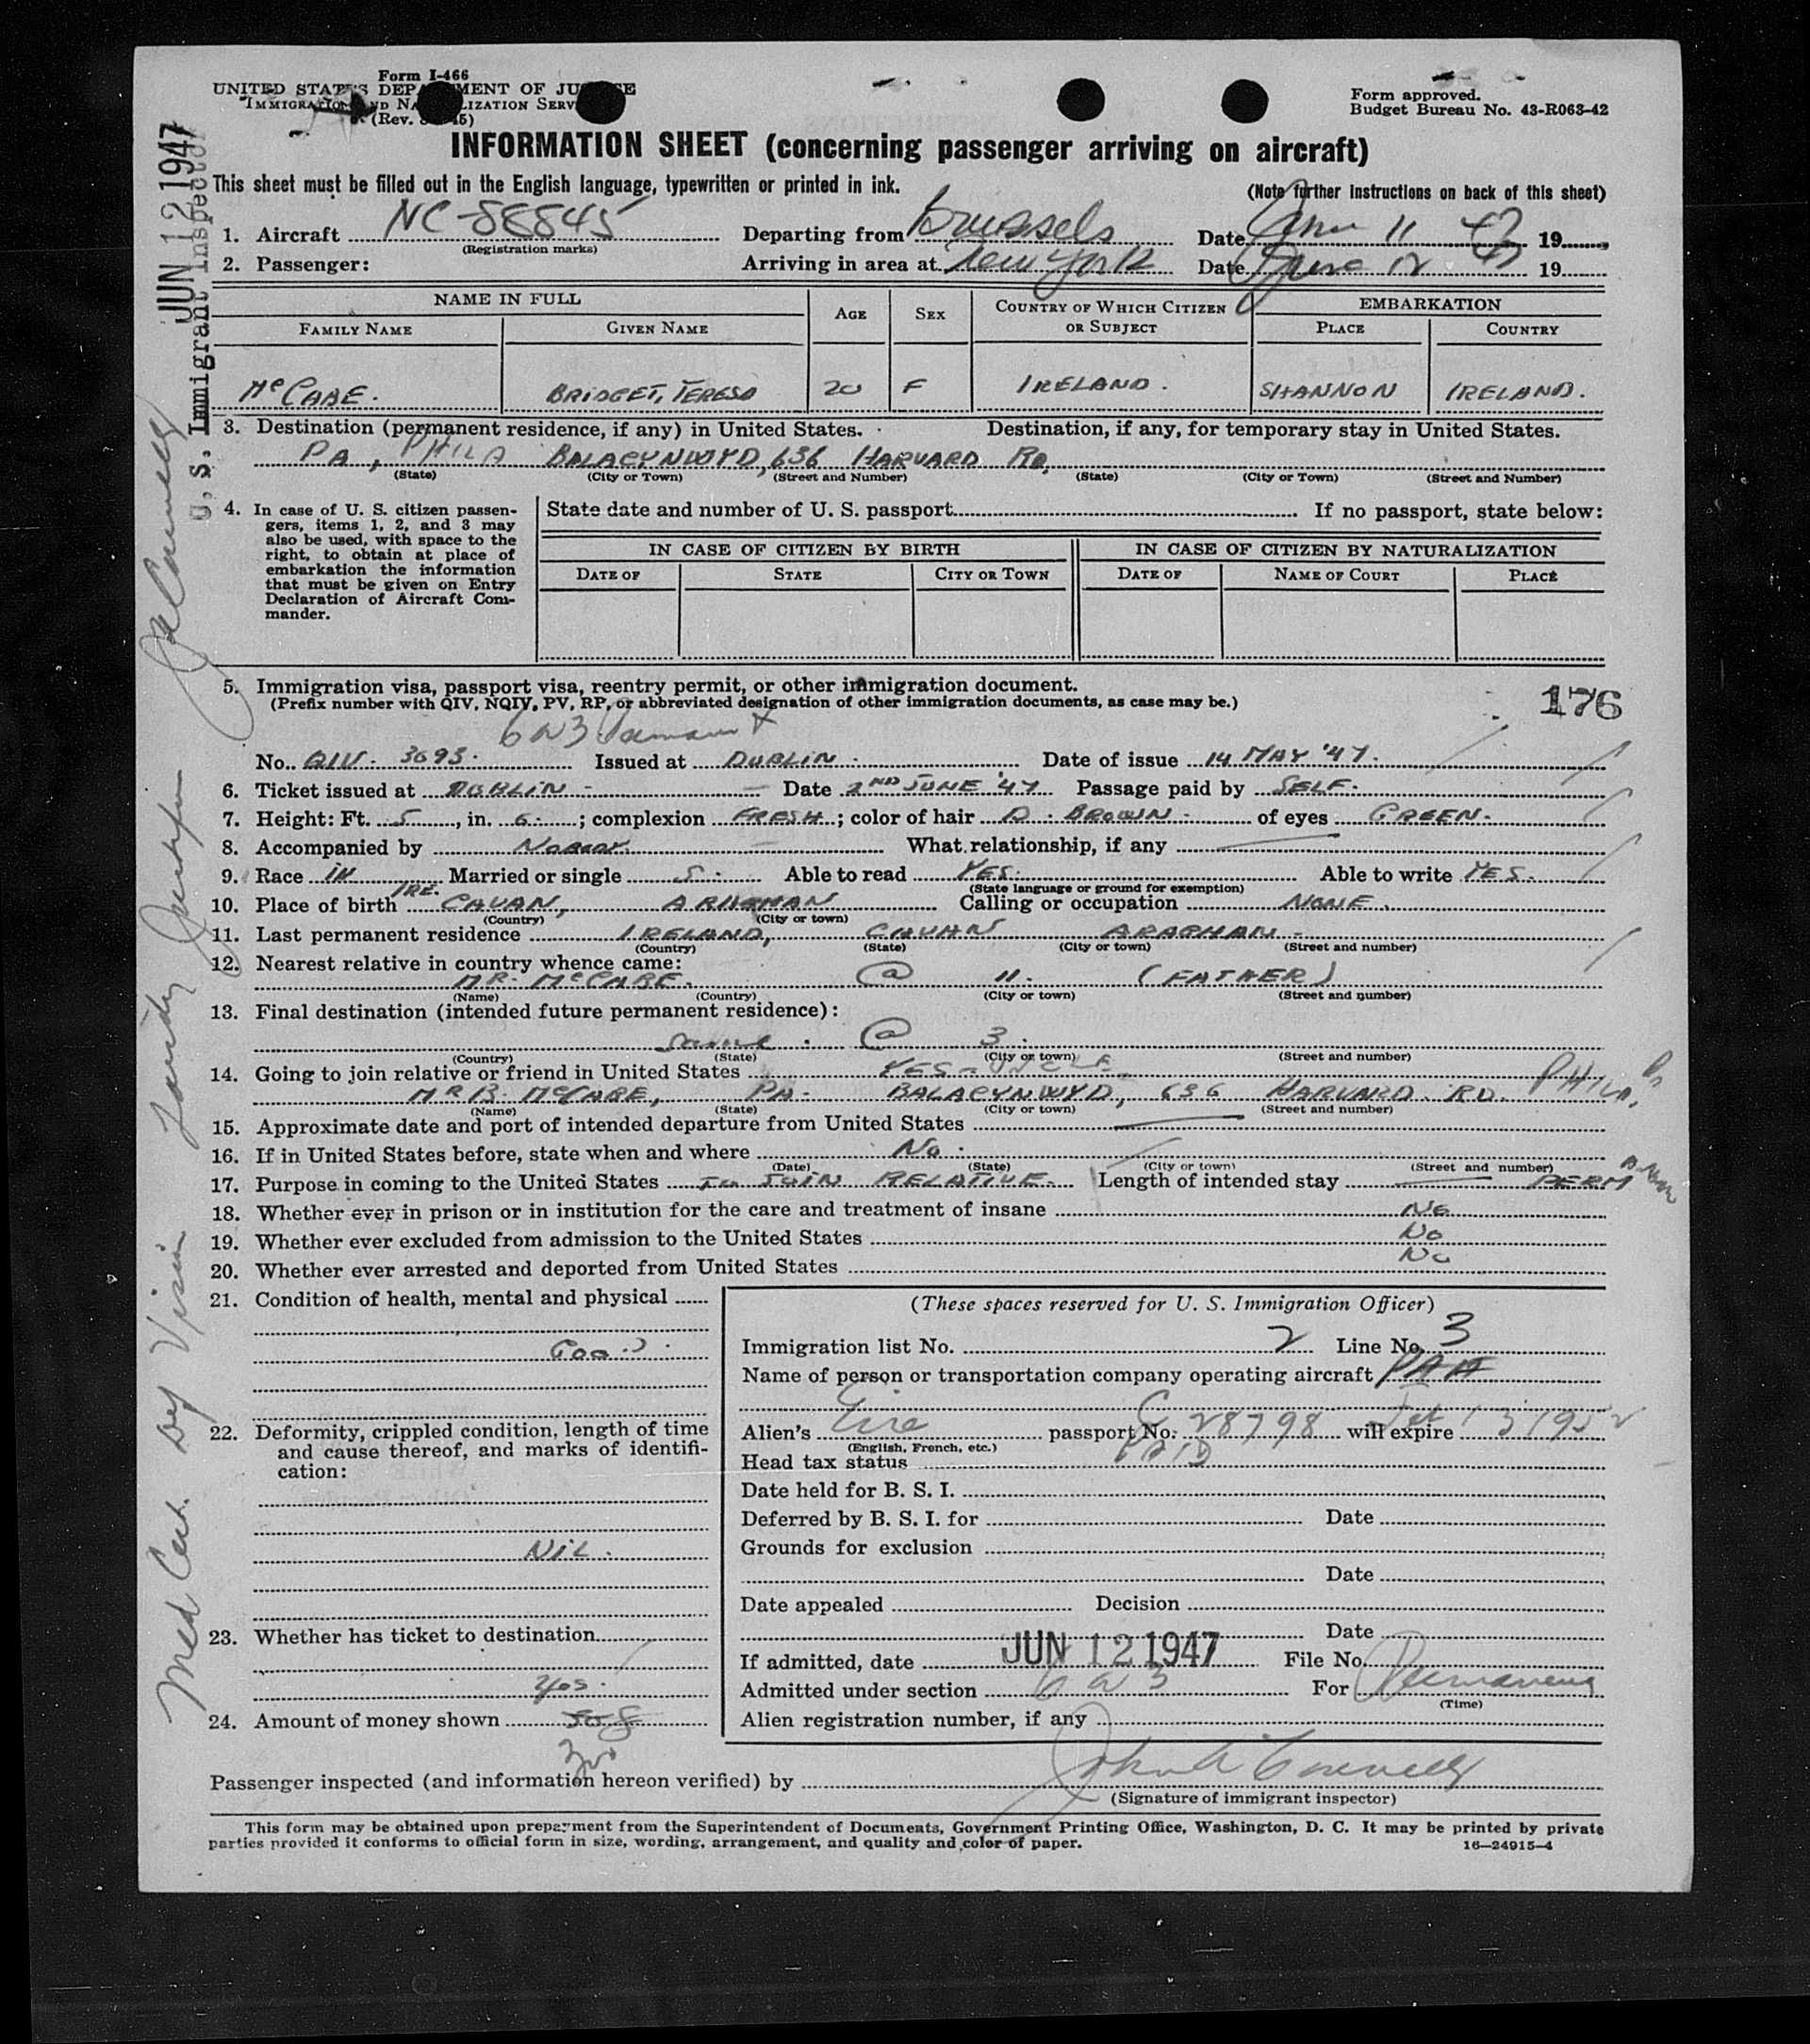 Form I-466
UNITED STATES DEPARTMENT OF JUSTICE
IMMIGRATION AND NATURALIZATION SERVICE
(Rev. 5)
Form approved.
Budget Bureau No. 43-R063-42
INFORMATION SHEET (concerning passenger arriving on aircraft)
This sheet must be filled out in the English language, typewritten or printed in ink.
(Note further instructions on back of this sheet)
1. Aircraft NC-88845 Departing from Brussels Date June 11 47 19
(Registration marks)
2. Passenger: Arriving in area at New York Date June 12 47 19
NAME IN FULL AGE SEX COUNTRY OF WHICH CITIZEN OR SUBJECT EMBARKATION
FAMILY NAME GIVEN NAME PLACE COUNTRY
McCABE. BRIDGET, TERESA 20 F IRELAND. SHANNON IRELAND.
3. Destination (permanent residence, if any) in United States. Destination, if any, for temporary stay in United States.
PA, PHILA BALACYNWYD, 636 HARVARD RD.
(State) (City or Town) (Street and Number) (State) (City or Town) (Street and Number)
4. In case of U. S. citizen passen-
gers, items 1, 2, and 3 may
also be used, with space to the
right, to obtain at place of
embarkation the information
that must be given on Entry
Declaration of Aircraft Com-
mander.
State date and number of U. S. passport If no passport, state below:
IN CASE OF CITIZEN BY BIRTH IN CASE OF CITIZEN BY NATURALIZATION
DATE OF STATE CITY OR TOWN DATE OF NAME OF COURT PLACE
5. Immigration visa, passport visa, reentry permit, or other immigration document.
(Prefix number with QIV, NQIV, PV, RP, or abbreviated designation of other immigration documents, as case may be.)
176
6a3
No. QIV. 3693. Issued at DUBLIN. Date of issue 14 MAY '47.
6. Ticket issued at DUBLIN - Date 2ND JUNE '47 Passage paid by SELF.
7. Height: Ft. 5, in. 6.; complexion FRESH; color of hair D. BROWN. of eyes GREEN.
8. Accompanied by What relationship, if any
9. Race Married or single S. Able to read YES. Able to write YES.
(State language or ground for exemption)
10. Place of birth IRE. CAVAN, Calling or occupation NONE.
(Country) (City or town)
11. Last permanent residence IRELAND, CAVAN
(Country) (State) (City or town) (Street and number)
12. Nearest relative in country whence came:
MR. McCABE. @ 11. (FATHER)
(Name) (Country) (City or town) (Street and number)
13. Final destination (intended future permanent residence):
Same. @ 3.
(Country) (State) (City or town) (Street and number)
14. Going to join relative or friend in United States YES -
MR B. McCABE, PA. BALACYNWYD, 636 HARVARD. RD. PHILA, Pa
(Name) (State) (City or town) (Street and number)
15. Approximate date and port of intended departure from United States
16. If in United States before, state when and where NO.
(Date) (State) (City or town) (Street and number)
17. Purpose in coming to the United States TO JOIN RELATIVE. Length of intended stay PERM
18. Whether ever in prison or in institution for the care and treatment of insane NO
19. Whether ever excluded from admission to the United States NO
20. Whether ever arrested and deported from United States NO
21. Condition of health, mental and physical
GOOD.
22. Deformity, crippled condition, length of time
and cause thereof, and marks of identifi-
cation:
NIL.
23. Whether has ticket to destination
YES.
24. Amount of money shown
(These spaces reserved for U. S. Immigration Officer)
Immigration list No. 2 Line No. 3
Name of person or transportation company operating aircraft PAA
Alien's Eire passport No. C 28798 will expire 1952
(English, French, etc.)
Head tax status PAID
Date held for B. S. I.
Deferred by B. S. I. for Date
Grounds for exclusion
Date
Date appealed Decision
Date
If admitted, date JUN 12 1947 File No.
Admitted under section 6a3 For Permanent
(Time)
Alien registration number, if any
Passenger inspected (and information hereon verified) by
(Signature of immigrant inspector)
This form may be obtained upon prepayment from the Superintendent of Documents, Government Printing Office, Washington, D. C. It may be printed by private
parties provided it conforms to official form in size, wording, arrangement, and quality and color of paper.
16—24915-4
JUN 12 1947
U. S. Immigrant Inspector
Med Cert. Def Vision